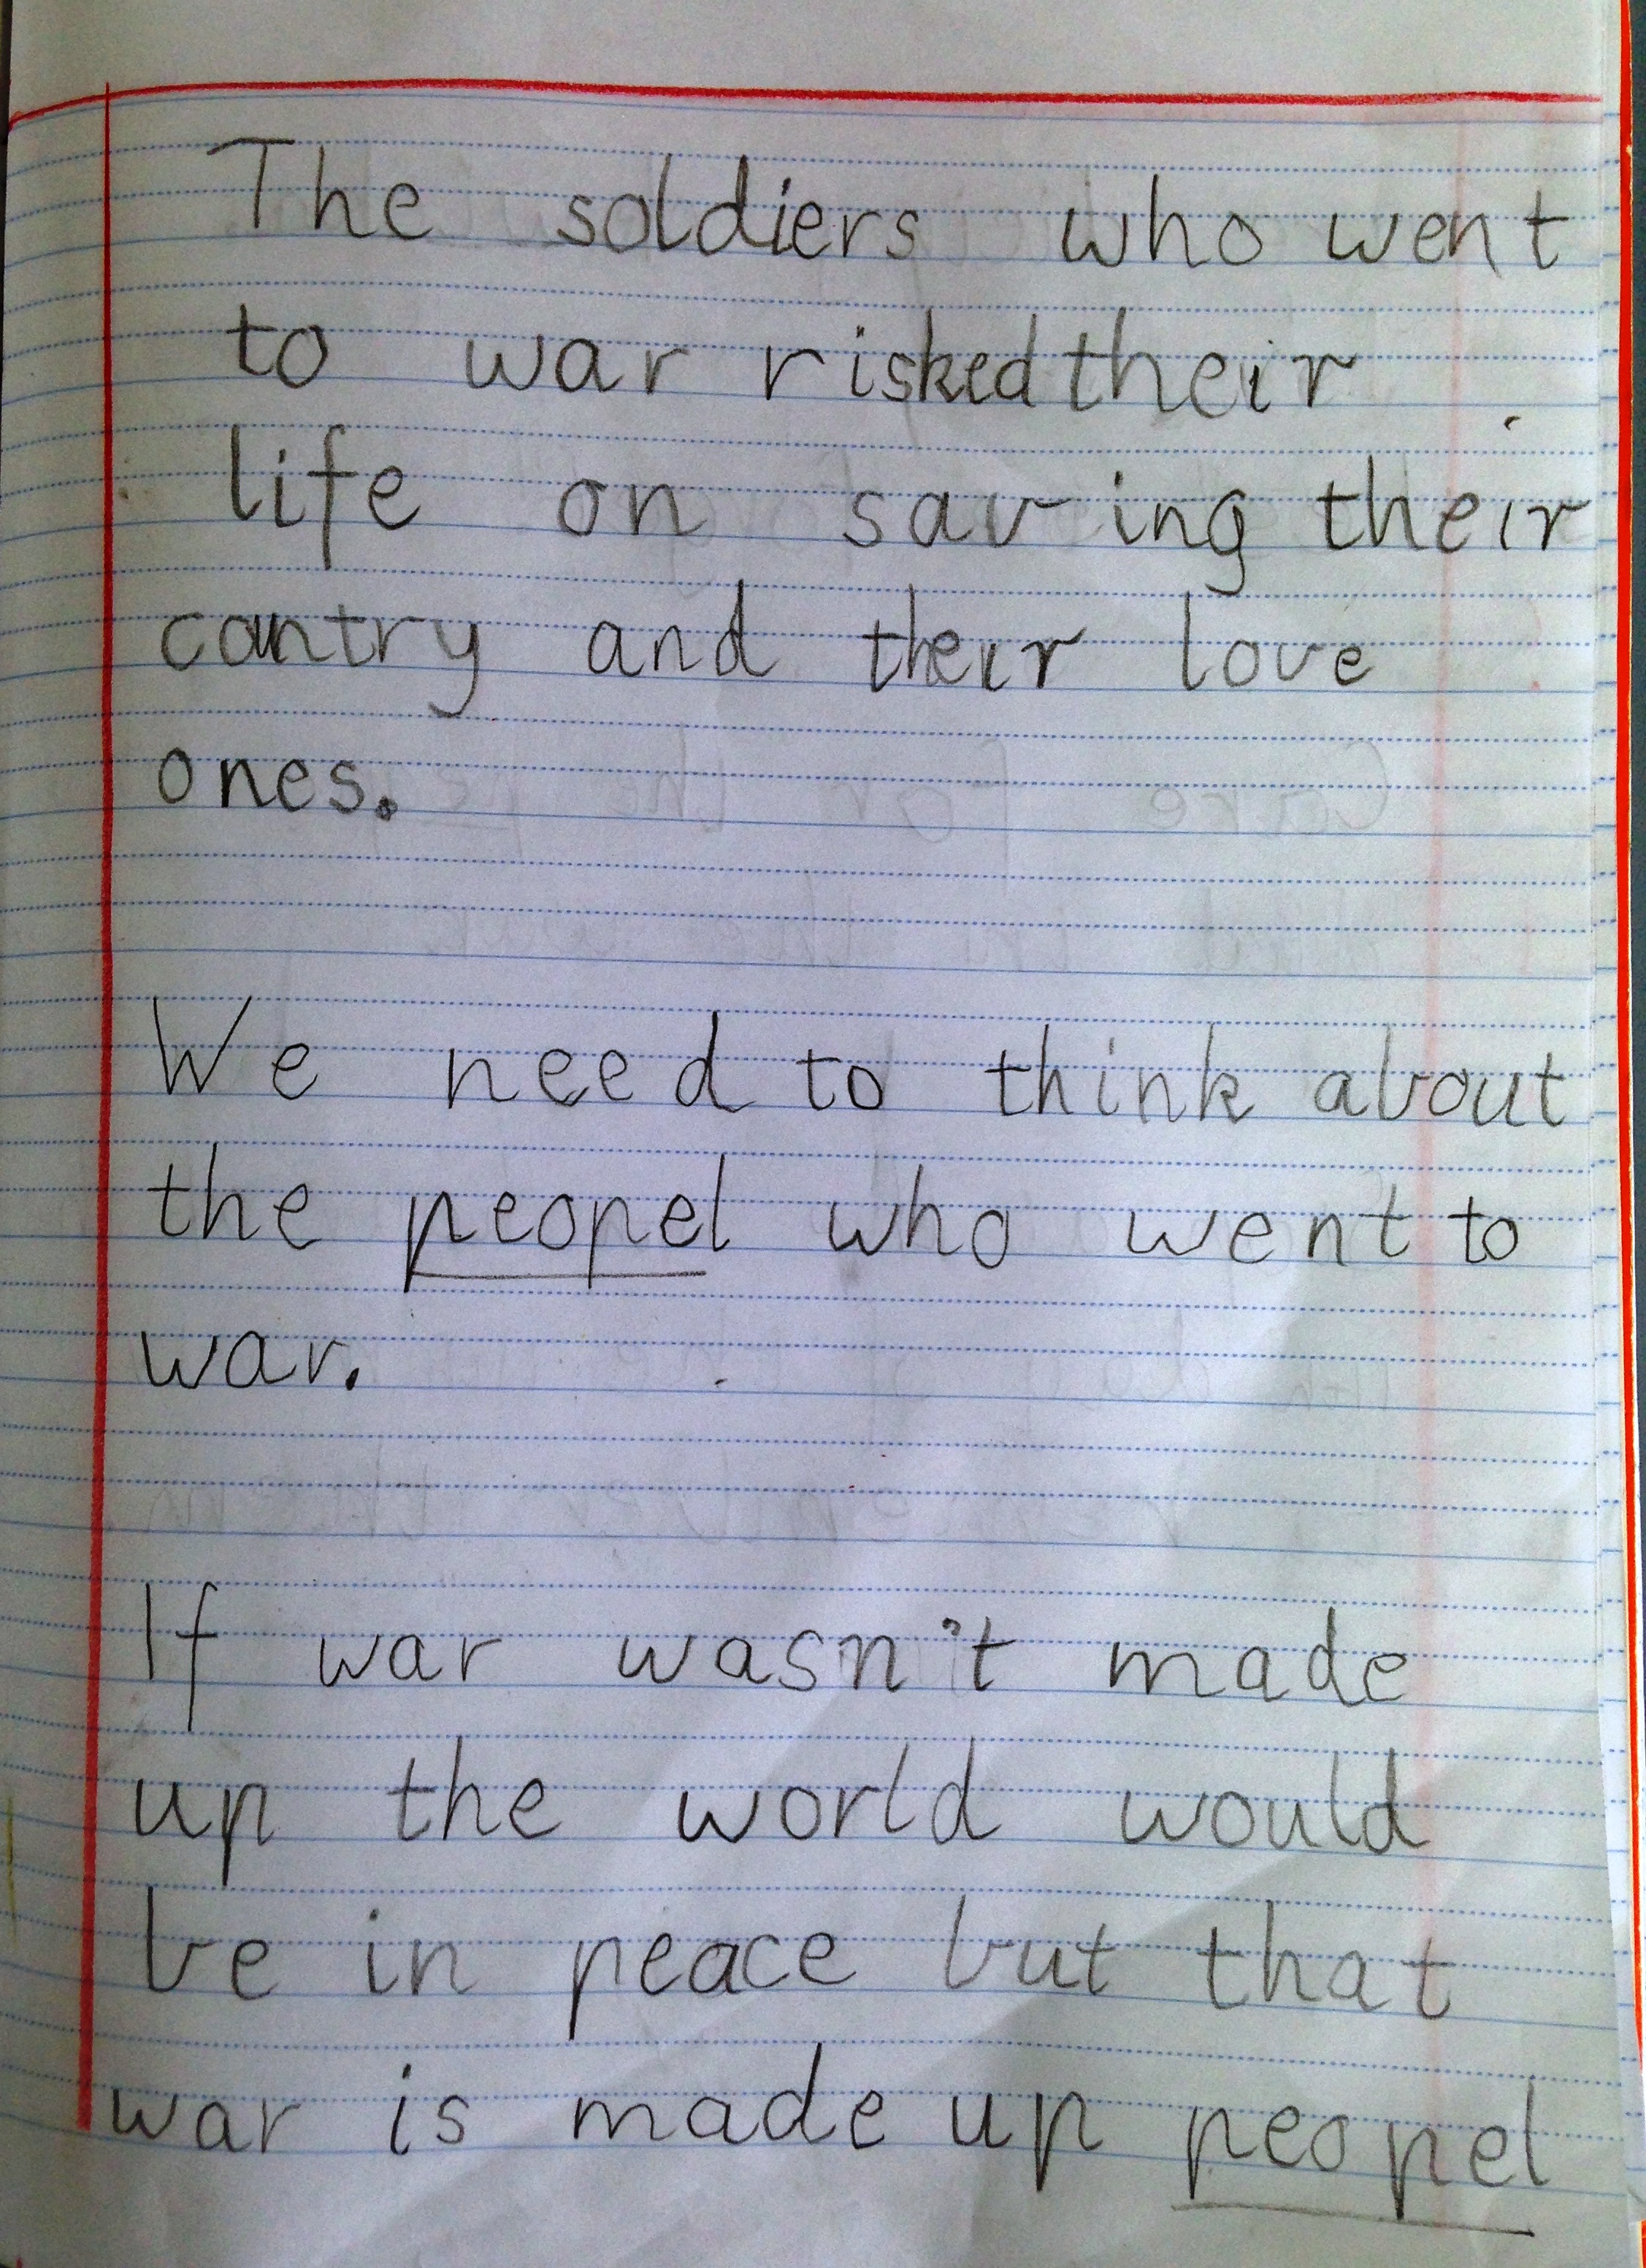 The soldiers who went
to war risked their
life on saving their
cantry and their love
ones.
We need to think about
the peopel who went to
war.
If war wasn't made
up the world would
be in peace but that
war is made up peopel